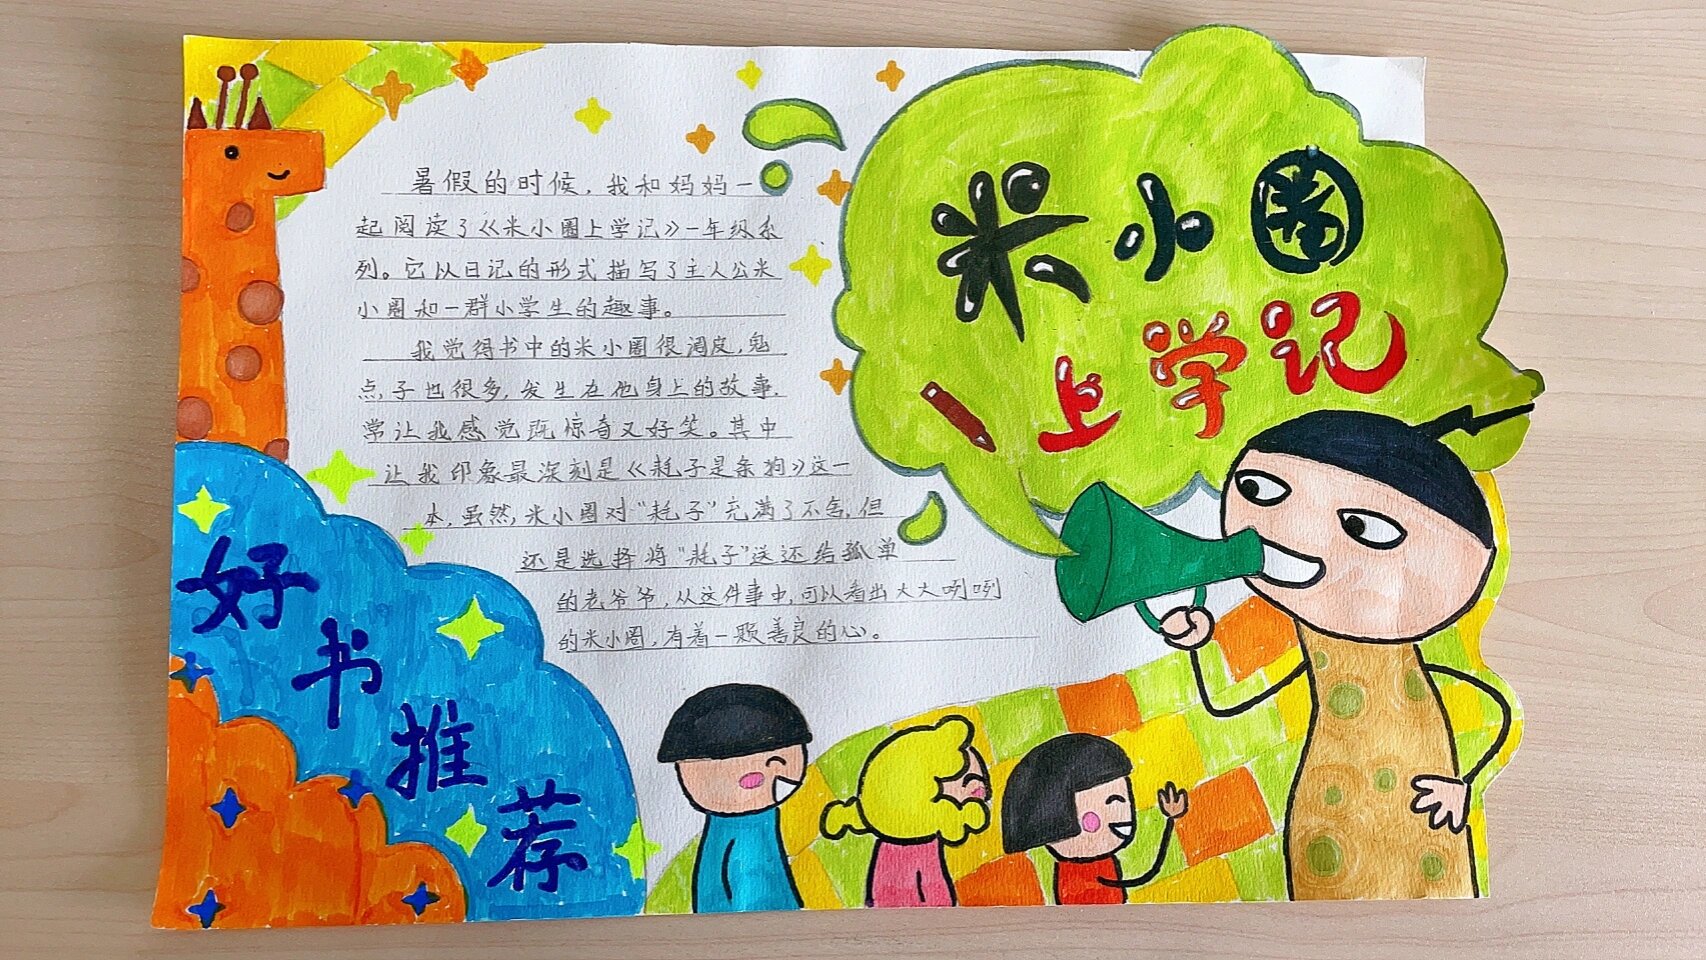 米小圈
上学记
暑假的时候，我和妈妈一
起阅读了《米小圈上学记》一年级系
列。它以日记的形式描写了主人公米
小圈和一群小学生的趣事。
我觉得书中的米小圈很调皮，鬼
点子也很多，发生在他身上的故事，
常让我感觉既惊奇又好笑。其中
让我印象最深刻是《耗子是条狗》这一
本，虽然，米小圈对“耗子”充满了不舍，但
还是选择将“耗子”送还给孤单
的老爷爷，从这件事中，可以看出大大咧咧
的米小圈，有着一颗善良的心。
好书推荐